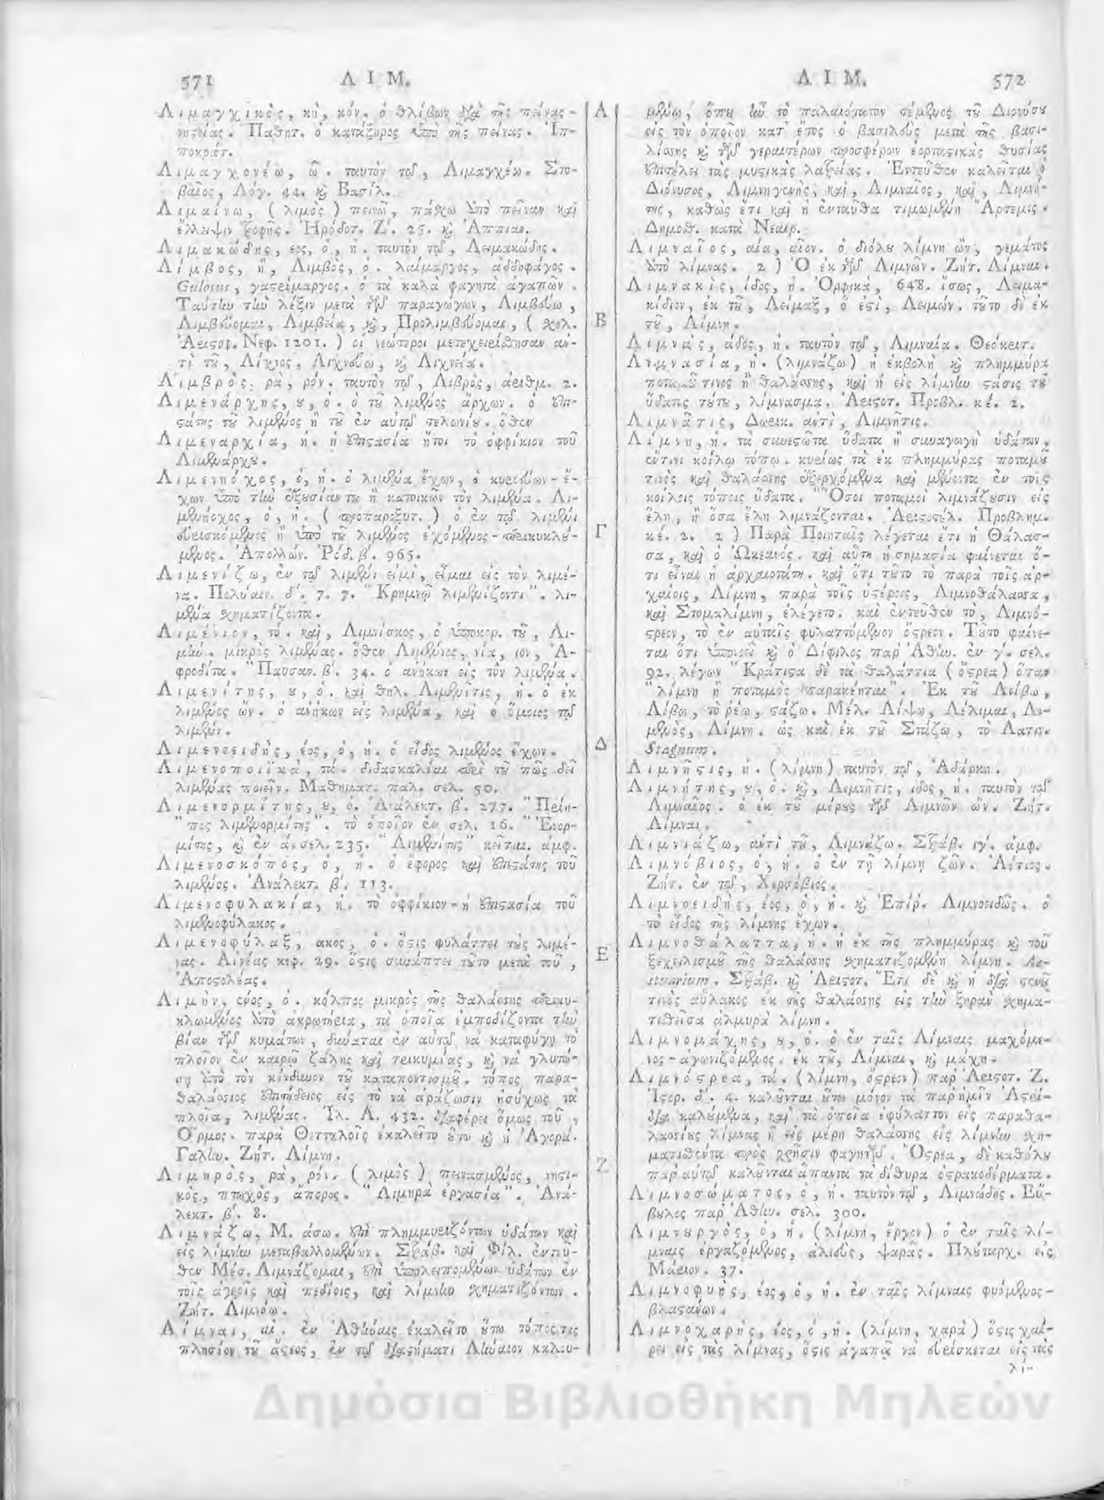 571 Λ Ι Μ.
Λιμαγχικὸς, κὴ, κόν. ὁ θλίβων διὰ τῆς πείνας -
νηστείας. Παθητ. ὁ κατάξηρος ὑπὸ τῆς πείνας. Ἱπ-
ποκράτ.
Λιμαγχονέω, ῶ. ταυτὸν τῷ, Λιμαγχέω. Στο-
βαῖος, Λόγ. 44. καὶ Βασίλ.
Λιμαίνω, ( λιμὸς ) πεινῶ, πάχω ὑπὸ πεῖναν καὶ
ἔλλειψιν τροφῆς. Ἡρόδοτ. Ζ'. 25. καὶ Ἀππιαν.
Λιμακώδης, εος, ὁ, ἡ. ταυτὸν τῷ, Λειμακώδης.
Λίμβος, ἡ, Λιμβὸς, ὁ. λαίμαργος, ἀδδοφάγος.
Gulosus, γαστρίμαργος. ὁ τὰ καλὰ φαγητὰ ἀγαπῶν.
Ταύτην τὴν λέξιν μετὰ τῶν παραγώγων, Λιμβεύω,
Λιμβεύομαι, Λιμβεία, καὶ, Προλιμβεύομαι, ( Σχολ.
Ἀριστοφ. Νεφ. 1201. ) οἱ νεώτεροι μετεχειρίσθησαν ἀν-
τὶ τῦ, Λίχνος, Λιχνεύω, καὶ Λιχνεία.
Λιμβρὸς, ρὰ, ρόν. ταυτὸν τῷ, Λιβρὸς, ἀριθμ. 2.
Λιμενάρχης, υ, ὁ. ὁ τῦ λιμένος ἄρχων. ὁ ἐπι-
στάτης τῦ λιμένος ἢ τῦ ἐν αὐτῷ τελωνίυ. ὅθεν
Λιμεναρχία, ἡ. ἡ ἐπιστασία ἤτοι τὸ ὀφφίκιον τοῦ
Λιμενάρχυ.
Λιμενήοχος, ὁ, ἡ. ὁ λιμένα ἔχων, ὁ κυριεύων - ἔ-
χων ὑπὸ τὴν ἐξουσίαν τυ ἢ κατοικῶν τὸν λιμένα. Λι-
μενήοχος, ὁ, ἡ. ( προπαροξυτ. ) ὁ ἐν τῷ λιμένι
εὑρισκόμενος ἢ ὑπὸ τῦ λιμένος ἐχόμενος - περικυκλύ-
μενος. Ἀπολλων. Ῥόδ. β'. 965.
Λιμενίζω, ἐν τῷ λιμένι εἰμὶ, εἶμαι εἰς τὸν λιμέ-
να. Πολύαιν. δ'. 7. 7. "Κρημνῷ λιμενίζοντι". λι-
μένα σχηματίζοντα.
Λιμένιον, τό. καὶ, Λιμνίσκος, ὁ ὑποκορ. τῦ, Λι-
μήν. μικρὸς λιμένας. ὅθεν Λιμένιος, νία, ιον, Ἀ-
φροδίτα. "Παυσαν. β'. 34. ὁ ἀνήκων εἰς τὸν λιμένα.
Λιμενίτης, υ, ὁ. καὶ θηλ. Λιμενῖτις, ἡ. ὁ ἐκ
λιμένος ὤν. ὁ ἀνήκων εἰς λιμένα, καὶ ὁ ὅμοιος τῷ
λιμένι.
Λιμενοειδὴς, έος, ὁ, ἡ. ὁ εἶδος λιμένος ἔχων.
Λιμενοποιϊκὰ, τά. διδασκαλίαι περὶ τῦ πῶς δεῖ
λιμένας ποιεῖν. Μαθηματ. παλ. σελ. 50.
Λιμενορμίτης, υ, ὁ. Ἀνάλεκτ. β'. 277. "Πείη-
"πος λιμενορμίτης". τὸ ὁποῖον ἐν σελ. 16. "Ἐνορ-
μίτης, καὶ ἐν ά. σελ. 235. "Λιμενίτης" κεῖται. ἀμφ.
Λιμενοσκόπος, ὁ, ἡ. ὁ ἔφορος καὶ ἐπιστάτης τοῦ
λιμένος. Ἀνάλεκτ. β'. 113.
Λιμενοφυλακία, ἡ. τὸ ὀφφίκιον - ἡ ἐπιστασία τοῦ
λιμενοφύλακος.
Λιμενοφύλαξ, ακος, ὁ. ὅστις φυλάττει τὺς λιμέ-
νας. Αἰνέας κεφ. 29. ὅστις συνάπτει τῦτο μετὰ τοῦ,
Ἀποστολέας.
Λιμὴν, ένος, ὁ. κόλπος μικρὸς τῆς θαλάσσης περικυ-
κλωμένος ὑπὸ ἀκρωτήρια, τὰ ὁποῖα ἐμποδίζοντα τὴν
βίαν τῶν κυμάτων, δύναται ἐν αὐτῷ νὰ καταφύγῃ τὸ
πλοῖον ἐν καιρῷ ζάλης καὶ τρικυμίας, καὶ νὰ γλυτώ-
σῃ ὑπὸ τὸν κίνδυνον τῦ καταποντισμῦ. τόπος παρα-
θαλάσσιος ἐπιτήδειος εἰς τὸ νὰ ἀράζωσιν ἡσύχως τὰ
πλοῖα, λιμένας. Ἰλ. Α. 432. διαφέρει ὅμως τοῦ,
Ὅρμος. παρὰ Θετταλοῖς ἐκαλεῖτο ὕτω καὶ ἡ Ἀγορά.
Γαλην. Ζήτ. Λίμνη.
Λιμηρὸς, ρὰ, ρόν. ( λιμὸς ) πεινασμένος, νηστι-
κὸς, πτωχὸς, ἄπορος. "Λιμηρὰ ἐργασία". Ἀνά-
λεκτ. β'. 8.
Λιμνάζω, Μ. άσω. ἐπὶ πλημμυριζόντων ὑδάτων καὶ
εἰς λίμνην μεταβαλλομένων. Στράβ. καὶ Φιλ. ἐντεῦ-
θεν Μέσ. Λιμνάζομαι, ἐπὶ ὑπολειπομένων ὑδάτων ἐν
τοῖς ἀγροῖς καὶ πεδίοις, καὶ λίμνην σχηματιζόντων.
Ζήτ. Λιμνόω.
Λίμναι, αἱ. ἐν Ἀθήναις ἐκαλεῖτο ὕτω τόπος τις
πλησίον τῦ ἄστεος, ἐν τῷ διαστήματι Λήναιον καλυ-
Α
Β
Γ
Δ
Ε
Ζ
Λ Ι Μ. 572
μένῳ, ὅπυ ἦν τὸ παλαιότατον τέμενος τῦ Διονύσυ
εἰς τὸν ὁποῖον κατ' ἔτος ὁ βασιλεὺς μετὰ τῆς βασι-
λίσσης καὶ τῶν γεραιτέρων προσφέρων ἑορταστικὰς θυσίας
ἐπιτελεῖ τὰς μυστικὰς λατρείας. Ἐντεῦθεν καλεῖται ὁ
Διόνυσος, Λιμνηγενὴς, καὶ, Λιμναῖος, καὶ, Λιμνή-
της, καθὼς ἔτι καὶ ἡ ἐνταῦθα τιμωμένη Ἄρτεμις.
Δημοσθ. κατὰ Νεαιρ.
Λιμναῖος, αία, αῖον. ὁ διόλυ λίμνη ὢν, γεμάτος
ὑπὸ λίμνας. 2 ) Ὁ ἐκ τῶν Λιμνῶν. Ζήτ. Λίμναι.
Λιμνακὶς, ίδος, ἡ. Ὀρφικὰ, 648. ἴσως, Λειμα-
κίδιον, ἐκ τῦ, Λείμαξ, ὅ ἐστι, Λειμών. τῦτο δὲ ἐκ
τῦ, Λίμνη.
Λιμνὰς, άδος, ἡ. ταυτὸν τῷ, Λιμναία. Θεόκριτ.
Λιμνασία, ἡ. (λιμνάζω) ἡ ἐκβολὴ καὶ πλημμύρα
ποταμῦ τινος ἢ θαλάσσης, καὶ ἡ εἰς λίμνην στάσις τῦ
ὕδατος τύτυ, λίμνασμα. Ἀριστοτ. Προβλ. κέ. 2.
Λιμνᾶτις, Δωρικ. ἀντὶ, Λιμνῆτις.
Λίμνη, ἡ. τὰ συνεστῶτα ὕδατα ἢ συναγωγὴ ὑδάτων,
ἔν τινι κοίλῳ τόπῳ. κυρίως τὰ ἐκ πλημμύρας ποταμῦ
τινὸς καὶ θαλάσσης ἐξερχόμενα καὶ μένοντα ἐν τοῖς
κοίλοις τόποις ὕδατα. "Ὅσοι ποταμοὶ λιμνάζυσιν εἰς
ἕλη, ἢ ὅσα ἕλη λιμνάζονται. Ἀριστοτέλ. Προβλημ.
κέ. 2. 2 ) Παρὰ Ποιηταῖς λέγεται ἔτι ἡ Θάλασ-
σα, καὶ ὁ Ὠκεανός. καὶ αὕτη ἡ σημασία φαίνεται ὅ-
τι εἶναι ἡ ἀρχαιοτάτη. καὶ ὅτι τῦτο τὸ παρὰ τοῖς ἀρ-
χαίοις, Λίμνη, παρὰ τοῖς ὑστέροις, Λιμνοθάλασσα,
καὶ Στομαλίμνη, ἐλέγετο. καὶ ἐντεῦθεν τὸ, Λιμνό-
στρεον, τὸ ἐν αὐταῖς φυλαττόμενον ὄστρεον. Τῦτο φαίνε-
ται ὅτι ἐννοεῖ καὶ ὁ Δίφιλος παρ' Ἀθην. ἐν γ'. σελ.
92. λέγων "Κράτιστα δὲ τὰ θαλάττια ( ὄστρεα ) ὅταν
"λίμνη ἢ ποταμὸς παρακέηται". Ἐκ τῦ Λείβω,
Λίβω, τὸ ῥέω, στάζω. Μέλ. Λίψω, Λέλιμαι, Λι-
μενὸς, Λίμνη. ὡς καὶ ἐκ τῦ Στάζω, τὸ Λατιν.
Stagnum.
Λίμνησις, ἡ. ( λίμνη ) ταυτὸν τῷ, Ἀδάρκη.
Λιμνήτης, υ, ὁ. καὶ, Λιμνῆτις, ιδος, ἡ. ταυτὸν τῷ
Λιμναῖος. ὁ ἐκ τῦ μέρυς τῶν Λιμνῶν ὤν. Ζήτ.
Λίμναι.
Λιμνιάζω, ἀντὶ τῦ, Λιμνάζω. Στράβ. ιγ'. ἀμφ.
Λιμνόβιος, ὁ, ἡ. ὁ ἐν τῇ λίμνῃ ζῶν. Ἀέτιος.
Ζήτ. ἐν τῷ, Χερσόβιος.
Λιμνοειδὴς, έος, ὁ, ἡ. καὶ Ἐπίῤ. Λιμνοειδῶς. ὁ
τὸ εἶδος τῆς λίμνης ἔχων.
Λιμνοθάλαττα, ἡ. ἡ ἐκ τῆς πλημμύρας καὶ τοῦ
ξεχειλισμῦ τῆς θαλάσσης σχηματιζομένη λίμνη. Ae-
stuarium. Στράβ. καὶ Ἀριστοτ. Ἔτι δὲ καὶ ἡ διὰ στενῦ
τινὸς αὔλακος ἐκ τῆς θαλάσσης εἰς τὴν ξηρὰν σχημα-
τισθεῖσα ἁλμυρὰ λίμνη.
Λιμνομάχης, υ, ὁ. ὁ ἐν ταῖς Λίμναις μαχόμε-
νος - ἀγωνιζόμενος. ἐκ τῦ, Λίμναι, καὶ μάχη.
Λιμνόστρεα, τά. (λίμνη, ὄστρεον) παρ' Ἀριστοτ. Ζ.
Ἱστορ. δ'. 4. καλῦνται ὕτω μόνον τὰ παρ' ἡμῖν Ἀστρί-
δια καλύμενα, καὶ τὰ ὁποῖα ἐφύλαττον εἰς παραθα-
λασσίυς λίμνας ἢ εἰς μέρη θαλάσσης εἰς λίμνην σχη-
ματισθέντα πρὸς χρῆσιν φαγητῶν. Ὄστρεα, δὲ καθόλυ
παρ' αὐτῷ καλῦνται ἅπαντα τὰ δίθυρα ὀστρακοδέρματα.
Λιμνοσώματος, ὁ, ἡ. ταυτὸν τῷ, Λιμνώδης. Εὔ-
βυλος παρ' Ἀθην. σελ. 300.
Λιμνυργὸς, ὁ, ἡ. (λίμνη, ἔργον) ὁ ἐν ταῖς λί-
μναις ἐργαζόμενος, ἁλιεὺς, ψαρᾶς. Πλύταρχ. εἰς
Μάριον. 37.
Λιμνοφυὴς, έος, ὁ, ἡ. ἐν ταῖς λίμναις φυόμενος -
βλαστάνων.
Λιμνοχαρὴς, έος, ὁ, ἡ. (λίμνη, χαρὰ) ὅστις χαί-
ρει εἰς τὰς λίμνας, ὅστις ἀγαπᾷ νὰ εὑρίσκεται εἰς τὰς
λί-
Δημόσια Βιβλιοθήκη Μηλεών